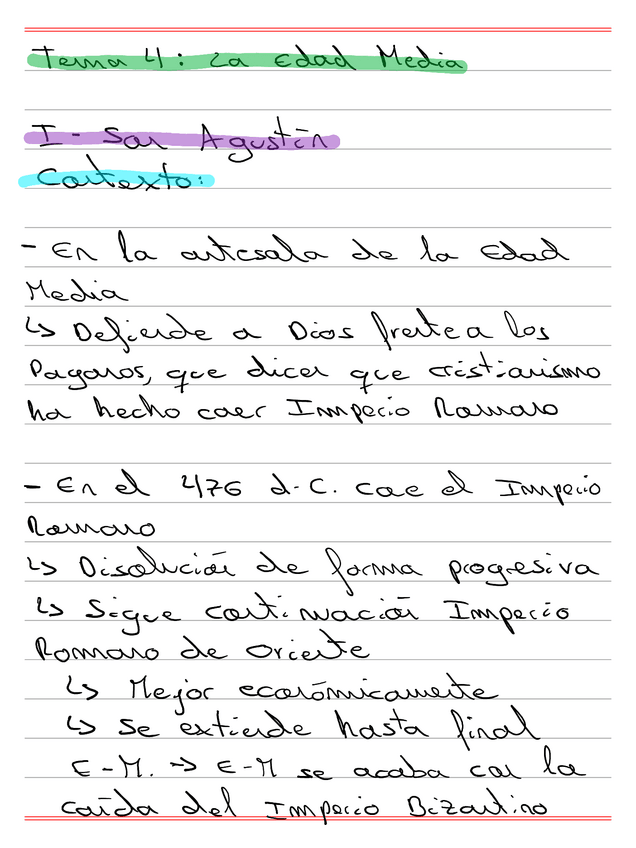 Tema 4: La Edad Media
I - San Agustín
Contexto:
- En la antesala de la Edad
Media
↳ Defiende a Dios frente a los
Paganos, que dicen que cristianismo
ha hecho caer Imperio Romano
- En el 476 d.C. cae el Imperio
Romano
↳ Disolución de forma progresiva
↳ Sigue continuación Imperio
Romano de Oriente
↳ Mejor económicamente
↳ Se extiende hasta final
E-M. → E-M se acaba con la
caída del Imperio Bizantino